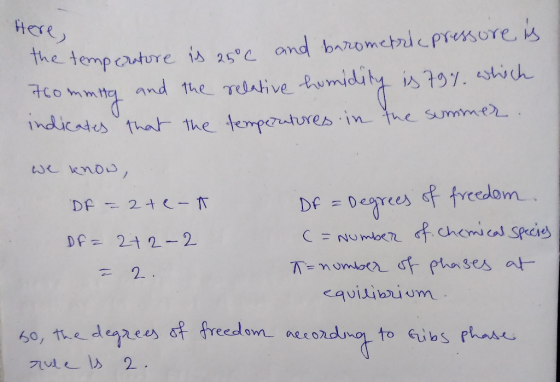 Here,
the temperature is 25°C and barometric pressure is
760 mmHg and the relative humidity is 79%. which
indicates that the temperatures in the summer.
we know,
DF = 2+c-π
DF = Degrees of freedom.
DF = 2+2-2
C = Number of chemical species
= 2.
π = number of phases at
equilibrium.
so, the degrees of freedom according to Gibs phase
rule is 2.